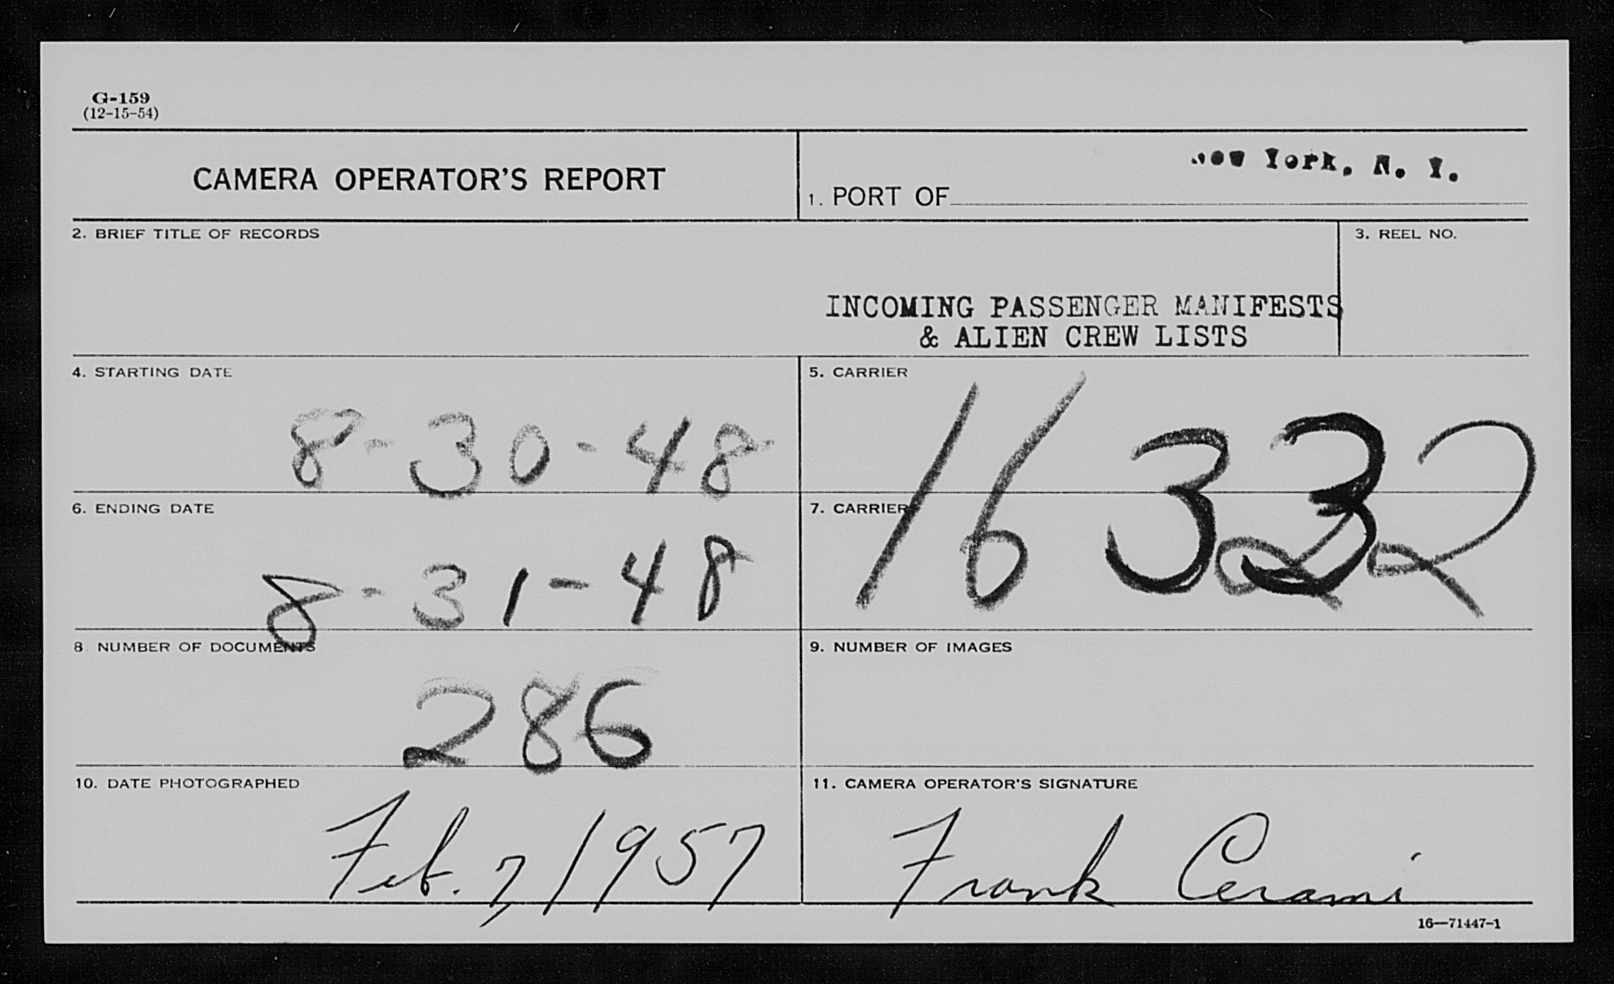 G-159
(12-15-54)
CAMERA OPERATOR'S REPORT
1. PORT OF New York, N. Y.
2. BRIEF TITLE OF RECORDS
3. REEL NO.
INCOMING PASSENGER MANIFESTS
& ALIEN CREW LISTS
4. STARTING DATE
8-30-48
5. CARRIER
6. ENDING DATE
8-31-48
7. CARRIER
8 NUMBER OF DOCUMENTS
286
9. NUMBER OF IMAGES
10. DATE PHOTOGRAPHED
Feb. 7, 1957
11. CAMERA OPERATOR'S SIGNATURE
Frank Cerami
16—71447-1